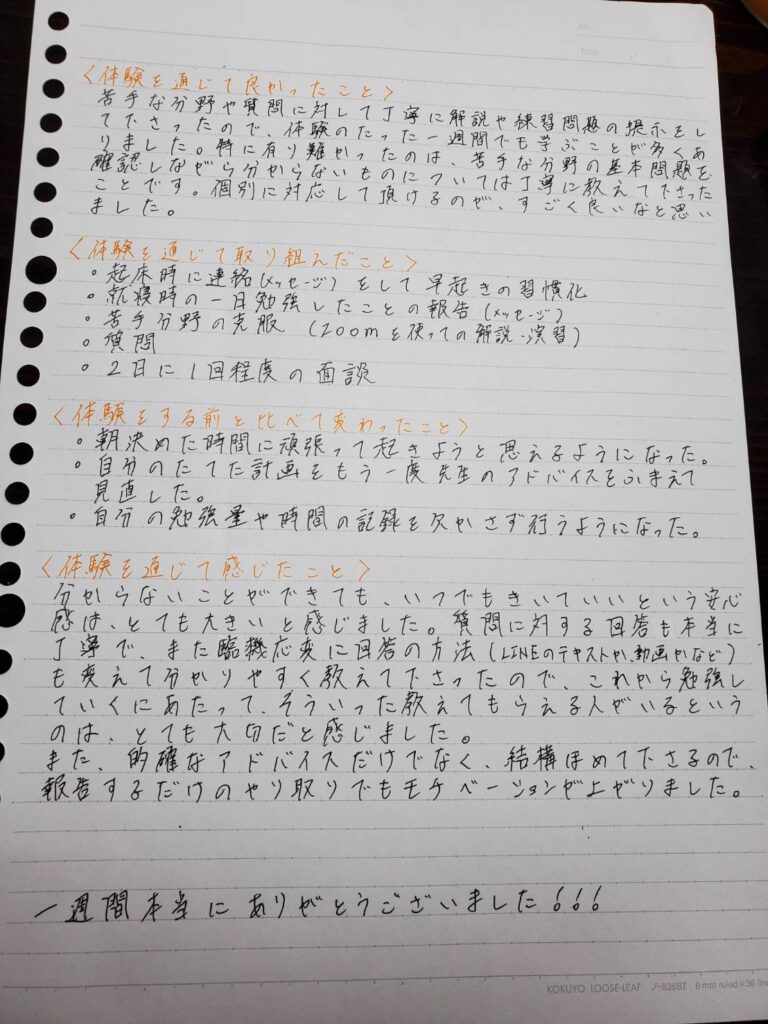 No.
Date
〈体験を通じて良かったこと〉
苦手な分野や質問に対して丁寧に解説や練習問題の提示をし
て下さったので、体験のたった一週間でも学ぶことが多くあ
りました。特に有り難かったのは、苦手な分野の基本問題を
確認しながら分からないものについては丁寧に教えて下さった
ことです。個別に対応して頂けるのが、すごく良いなと思い
ました。
〈体験を通じて取り組んだこと〉
・起床時に連絡(メッセージ)をして早起きの習慣化
・就寝時の一日勉強したことの報告(メッセージ)
・苦手分野の克服 (zoomを使っての解説・演習)
・質問
・2日に1回程度の面談
〈体験をする前と比べて変わったこと〉
・朝決めた時間に頑張って起きようと思えるようになった。
・自分のたてた計画をもう一度先生のアドバイスをふまえて
見直した。
・自分の勉強量や時間の記録を欠かさず行うようになった。
〈体験を通じて感じたこと〉
分からないことができても、いつでもきいていいという安心
感は、とても大きいと感じました。質問に対する回答も本当に
丁寧で、また臨機応変に回答の方法(LINEのテキストか、動画かなど)
も変えて分かりやすく教えて下さったので、これから勉強し
ていくにあたって、そういった教えてもらえる人がいるという
のは、とても大切だと感じました。
また、的確なアドバイスだけでなく、結構ほめて下さるので、
報告するだけのやり取りでもモチベーションが上がりました。
一週間本当にありがとうございました!!!
KOKUYO LOOSE-LEAF ノ-836BT 6 mm ruled×36 line